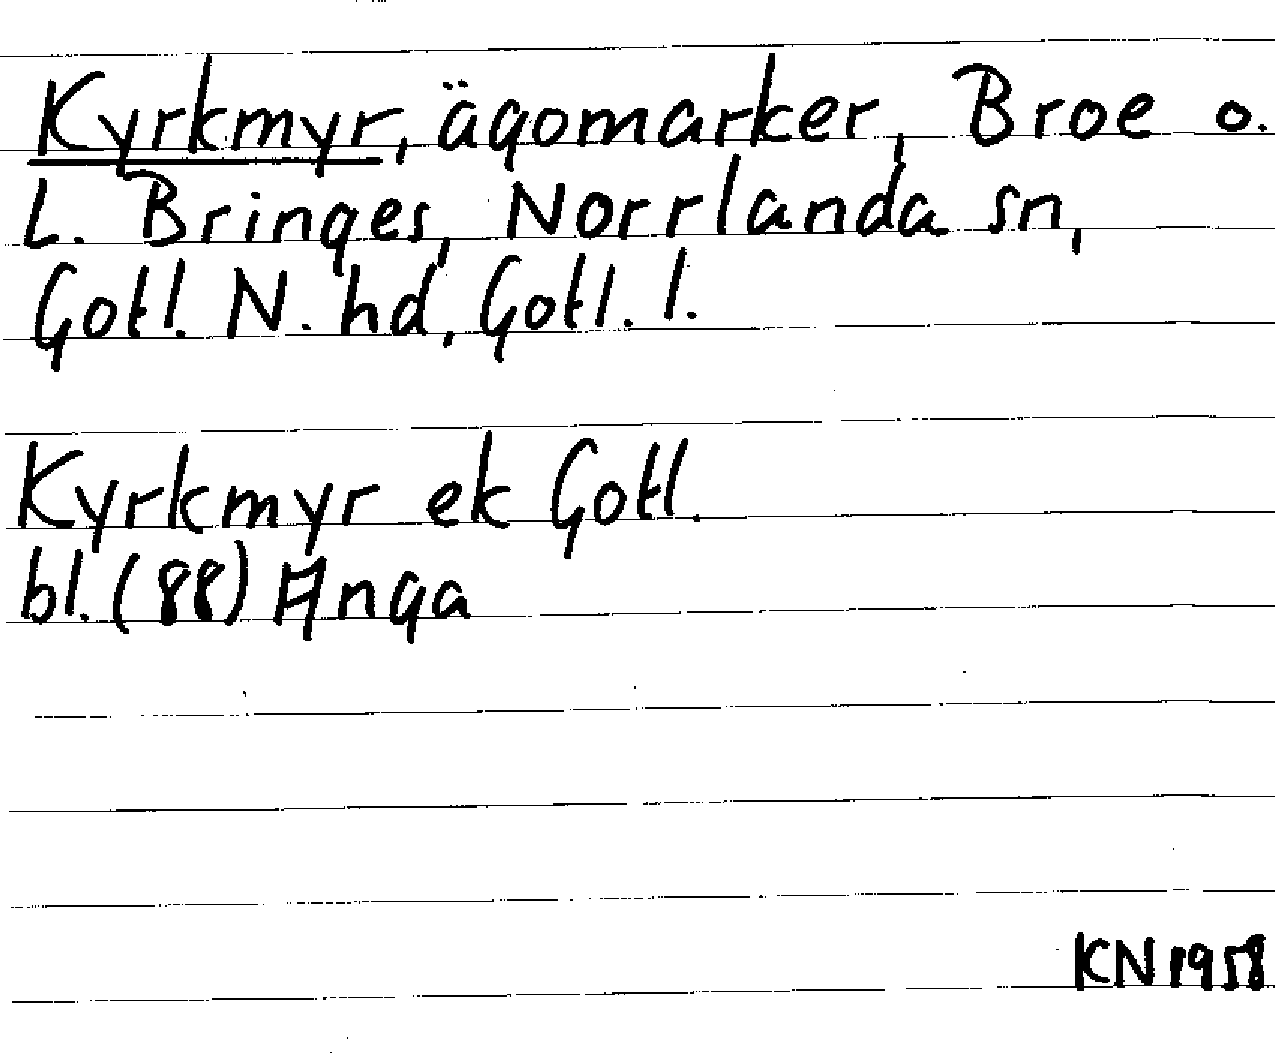 Kyrkmyr, ägomarker, Broe o.
L. Bringes, Norrlanda sn,
Gotl. N. hd, Gotl. l.
Kyrkmyr ek Gotl.
bl. (88) Anga
KN 1958